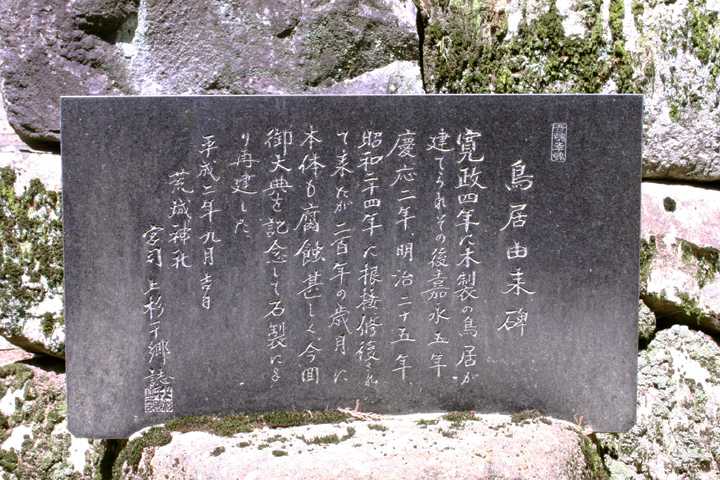 鳥居由来碑
寛政四年に木製の鳥居が
建てられその後嘉永五年
慶応二年、明治二十五年
昭和二十四年に根接修復され
て来たが二百年の歳月に
本体も腐蝕甚しく今回
御大典を記念して石製によ
り再建した
平成二年九月吉日
荒城神社
宮司 上杉千郷誌